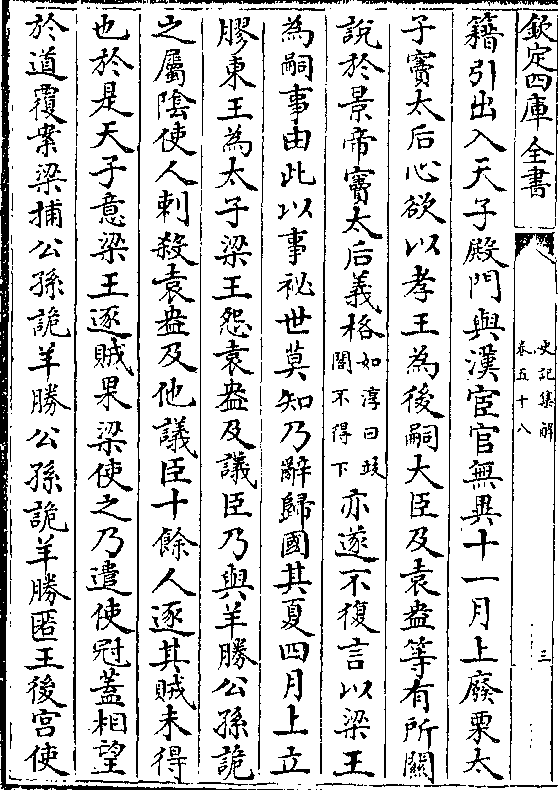 欽定四庫全書
史記集解
卷五十八
三
籍引出入天子殿門與漢宦官無異十一月上廢栗太
子竇太后心欲以孝王為後嗣大臣及袁盎等有所關
說於景帝竇太后義格如淳曰歧
閣不得下亦遂不復言以梁王
為嗣事由此以事祕世莫知乃辭歸國其夏四月上立
膠東王為太子梁王怨袁盎及議臣乃與羊勝公孫詭
之屬陰使人刺殺袁盎及他議臣十餘人逐其賊未得
也於是天子意梁王逐賊果梁使之乃遣使冠蓋相望
於道覆案梁捕公孫詭羊勝公孫詭羊勝匿王後宮使